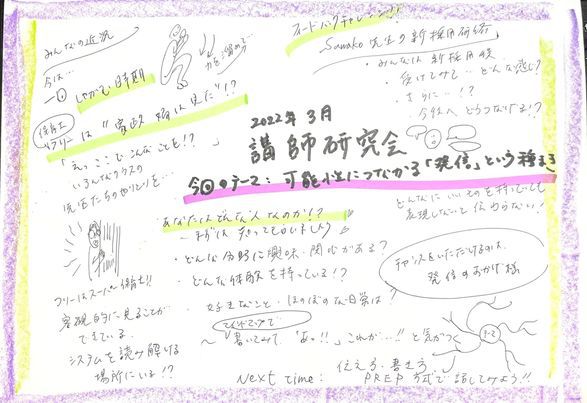 みんなの近況
今は…
一回 しゃがむ時期
力を溜めて
保育士
フリーは "家政婦は見た"!?
「え、ここでこんなことも!?」
いろんなクラスの
先生たちのやりとりを…
フリーはスーパー保育士!!
客観的に見ることが
できている
システムを読み解ける
場所にいる!?
フィードバックチャレンジ!!
Sawako先生の新採用研修
・みんなは新採用後
受けてみて… どんな感じ?
・さらに…!?
今後へどうつなげる!?
2022年3月
講師研究会
今回のテーマ: 可能性につながる「発信」という種まき
どんなにいいものを持っていても
表現しないと伝わらない!
あなたはどんな人なのか!?
〜まずは知ってもらいましょう
・どんな分野に興味・関心がある?
・どんな体験を持っている!?
好きなこと・ほのぼのな日常は?
〜書いてみて「あっ!!」これが…!! と気がつく
チャンスをいただけるのは、
発信のおかげ様
伝え方・書き方
Next time: PREP方式で話してみよう!!